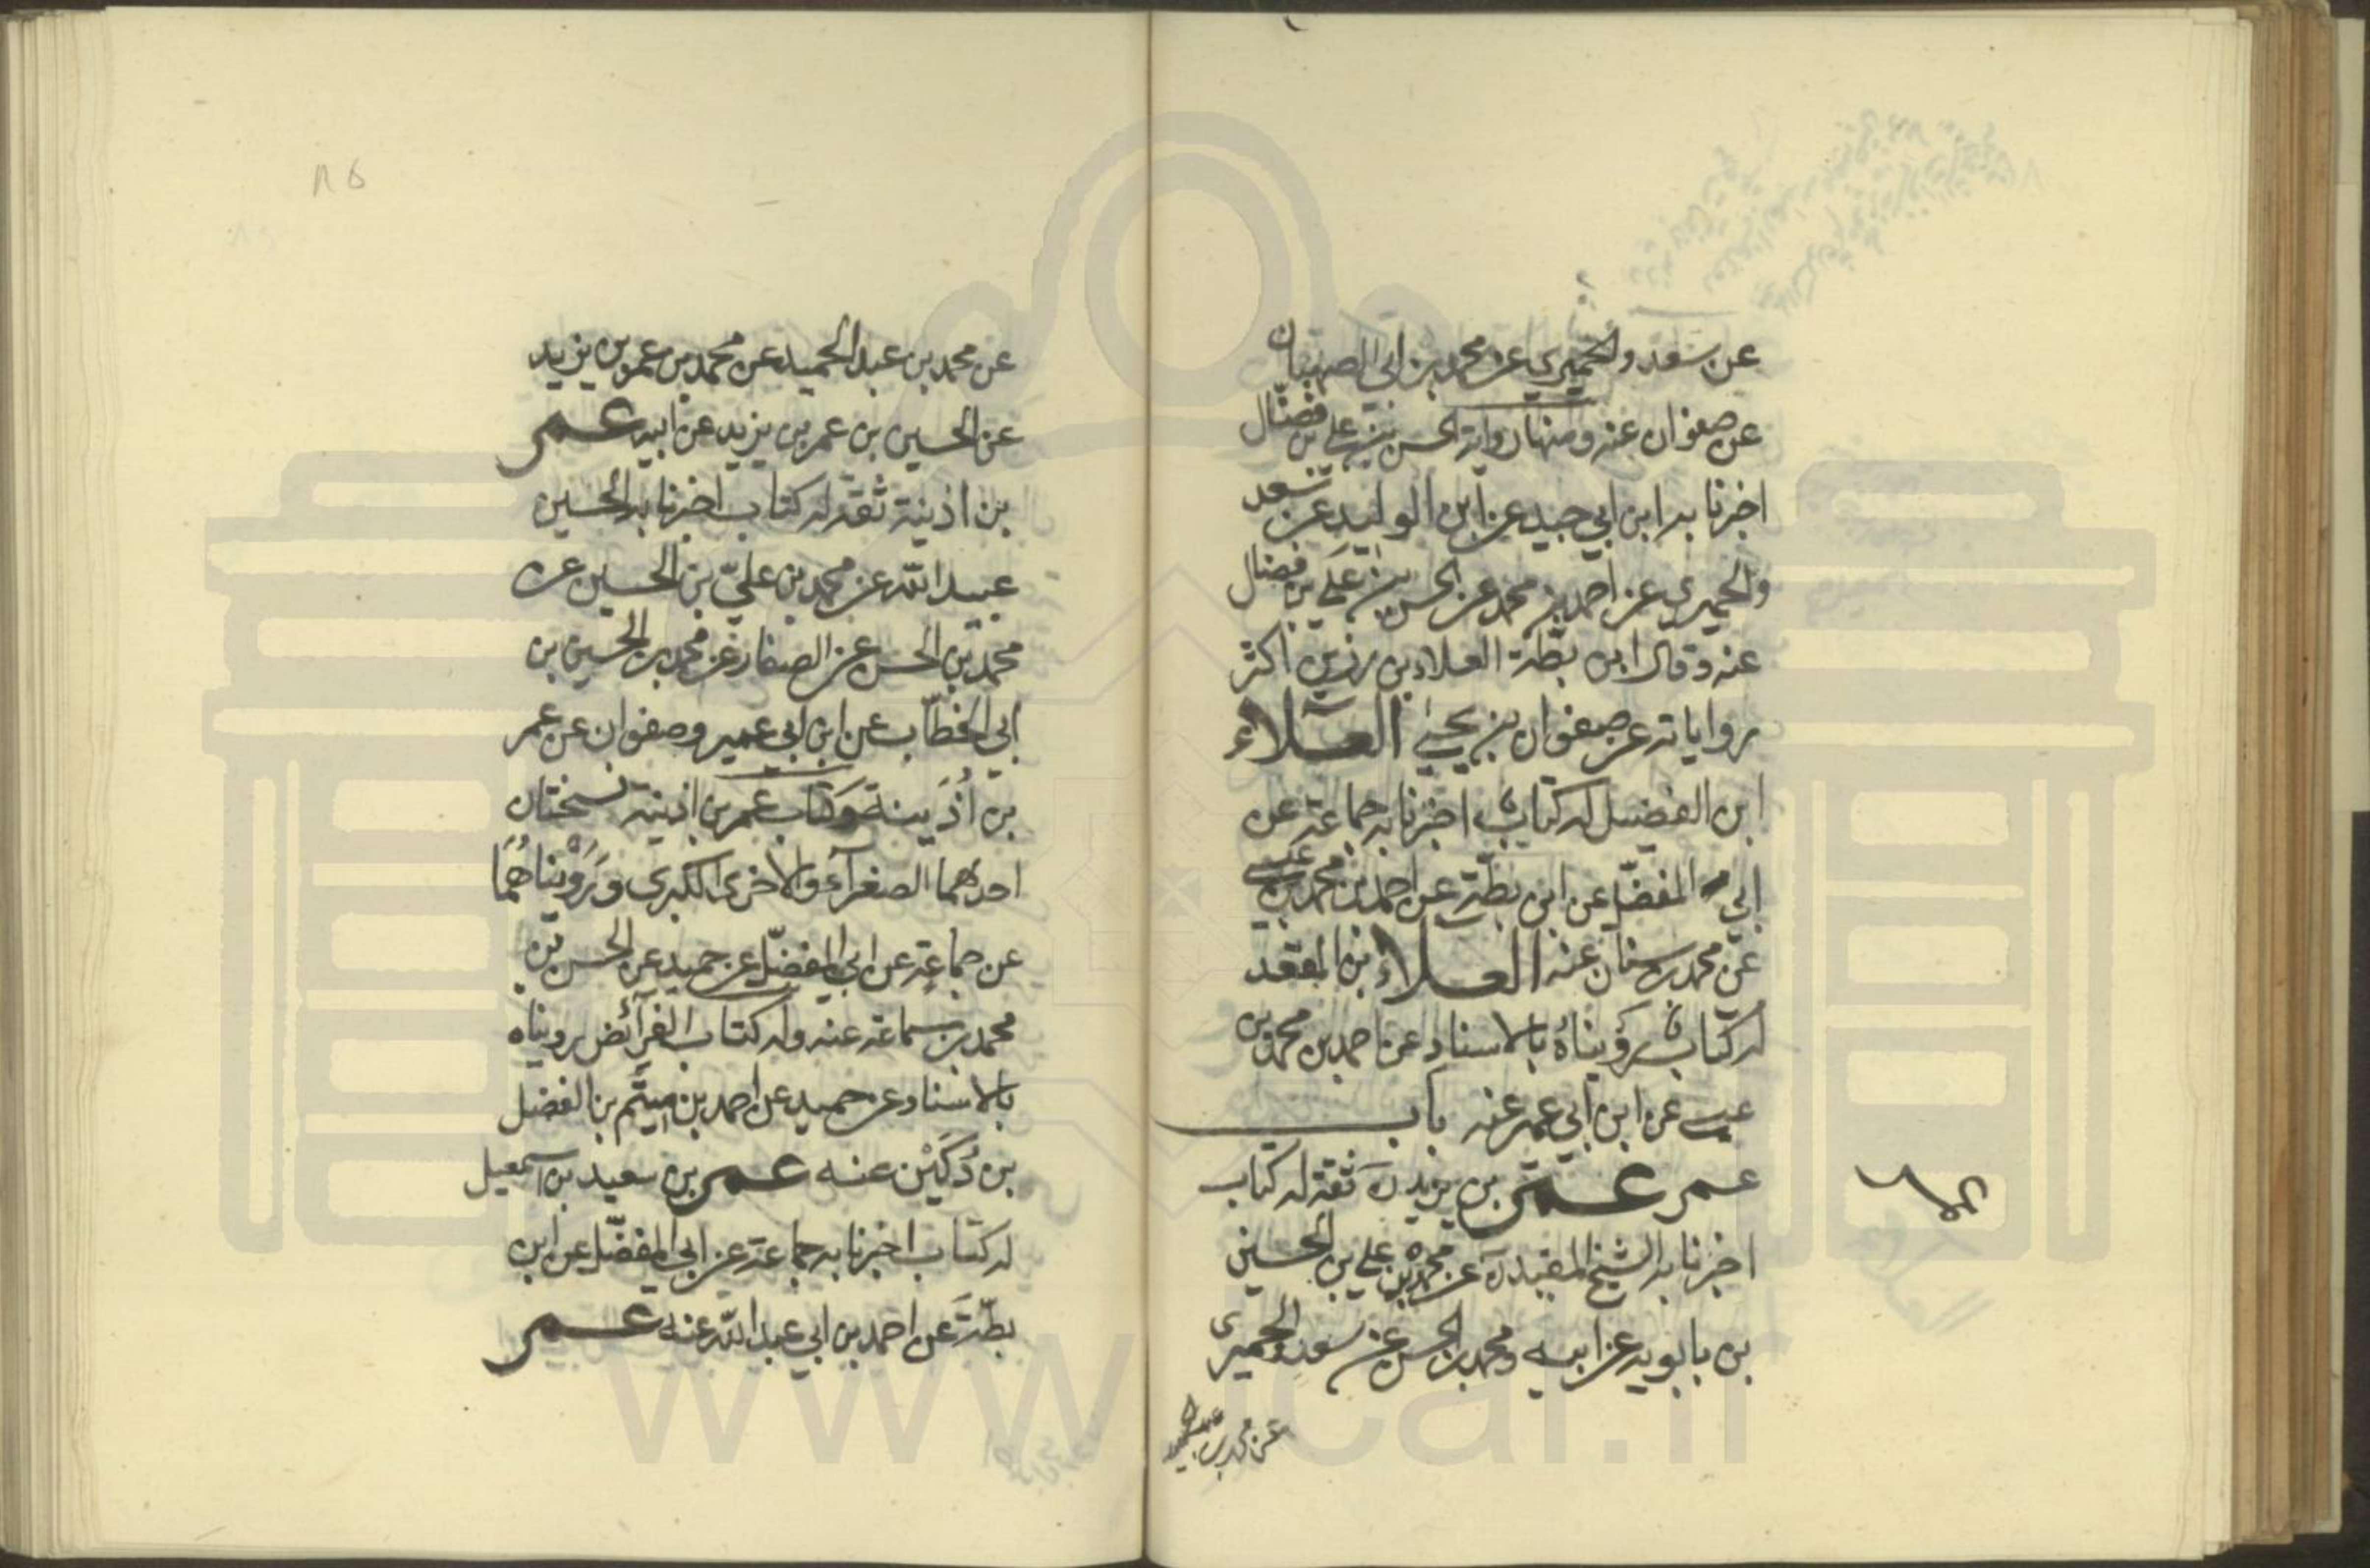 عن سعد والحميري عن محمد بن ابي الصهبان
عن صفوان عنه ومنها رواية الحسن بن علي بن فضال
اخبرنا به ابن ابي جيد عن ابن الوليد عن سعد
والحميري عن احمد بن محمد عن الحسن بن علي بن فضال
عنه وقال ابن بطة العلاء بن رزين اكثر
رواياته عن صفوان بن يحيى العلاء
ابن الفضيل له كتاب اخبرنا به جماعة عن
ابي المفضّل عن ابن بطّة عن احمد بن محمد بن عيسى
عن محمد بن سنان عنه العلاء بن المقعد
له كتاب رَوَيناهُ بالاسناد عن احمد بن محمد بن
عيسى عن ابن ابي عمير عنه باب
عمر عمر بن يزيد ثقة له كتاب
اخبرنا به الشيخ المفيد ره عن محمد بن علي بن الحسين
بن بابويه عن ابيه ومحمد بن الحسن عن سعد والحميرى
عن محمد بن عبد الحميد
عن محمد بن عبد الحميد عن محمد بن عمر بن يزيد
عن الحسين بن عمر بن يزيد عن ابيه عمر
بن اذينة ثقة له كتاب اخبرنا به الحسين
عبيد الله عن محمد بن عليّ بن الحسين عن
محمد بن الحسن عن الصفار عن محمد بن الحسين بن
ابي الخطّاب عن ابن ابي عمير وصفوان عن عمر
بن اُذَينة وكتاب عمر بن اذينة نسختان
احدهما الصغرآء والاخرى الكبرى ورَوَيْناهُمَا
عن جماعة عن ابي المفضّل عن حميد عن الحسن بن
محمد بن سماعة عنه وله كتاب الفرآئض رويناه
بالاسناد عن حميد عن احمد بن ميثَم بن الفضل
بن دُكَيْن عنه عمر بن سعيد بن اسمعيل
له كتاب اخبرنا به جماعة عن ابي المفضّل عن ابن
بطّةَ عن احمد بن ابي عبد الله عنه عمر